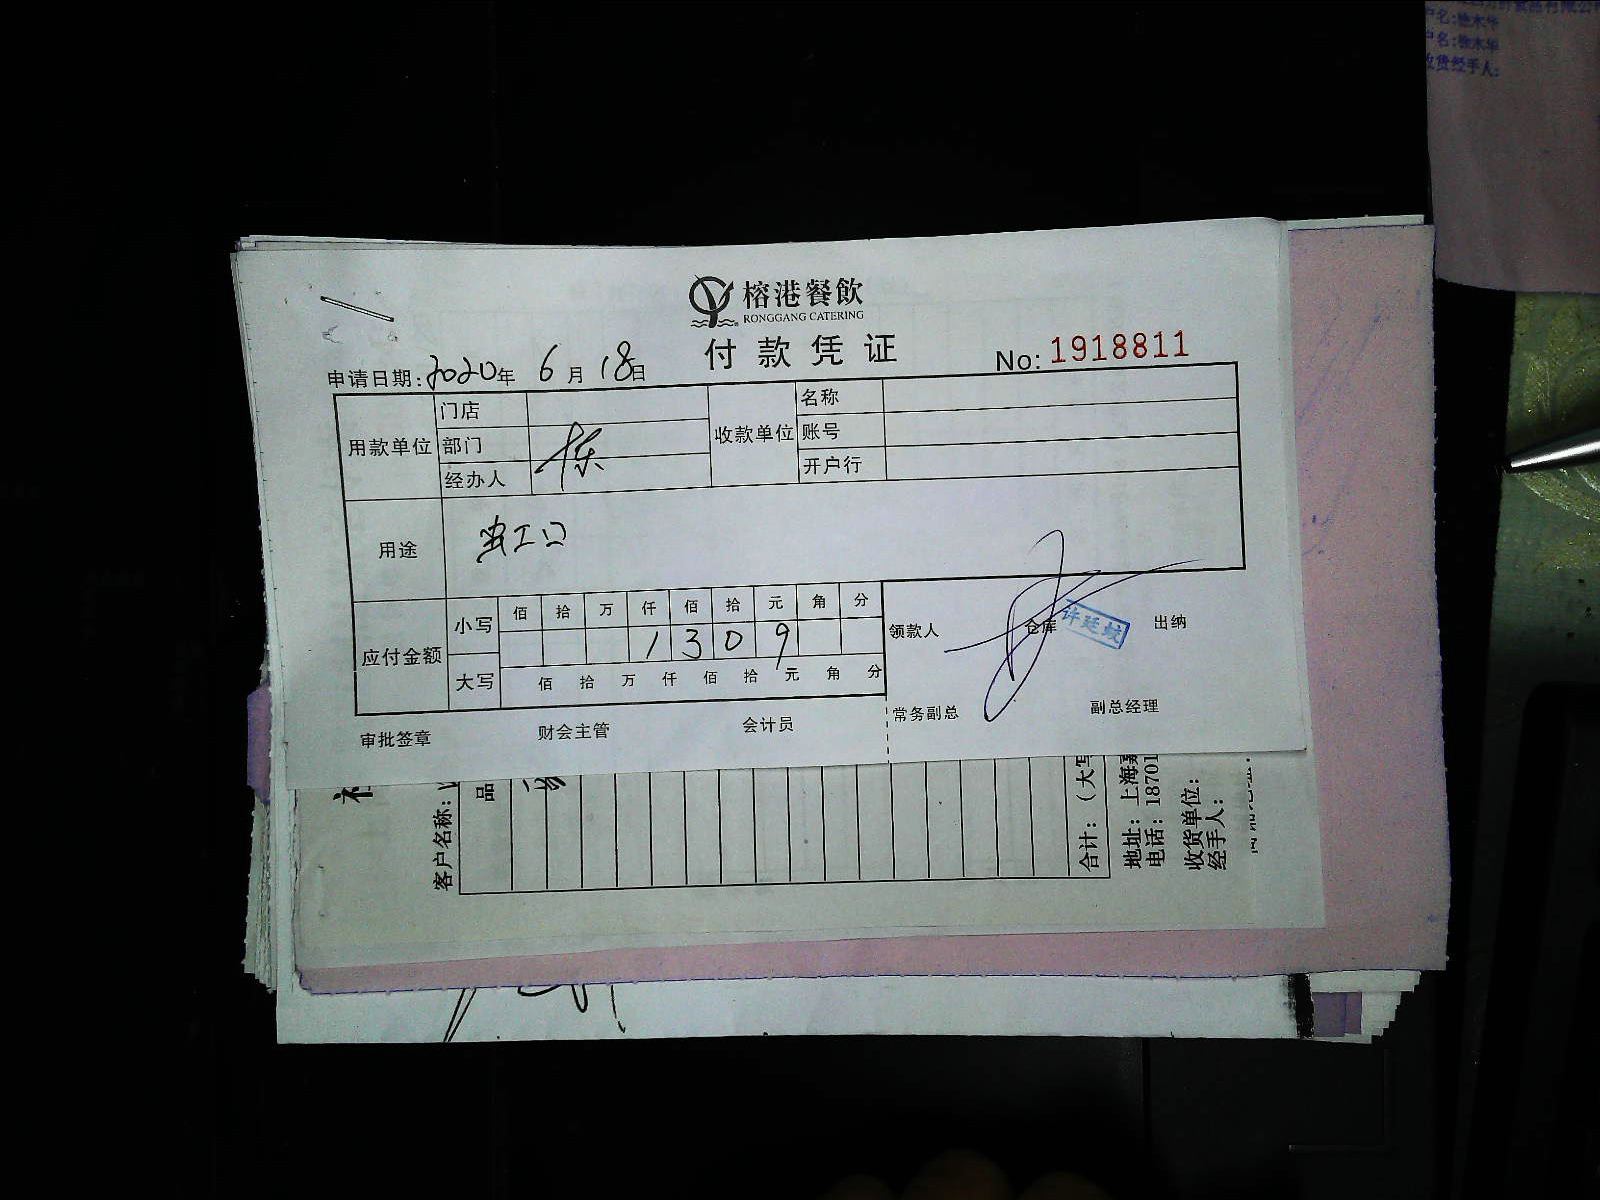 食品有限公司
户名:
户名:
收货经手人:
榕港餐飲
RONGGANG CATERING
付款凭证
No: 1918811
申请日期: 2020年 6月 18日
用款单位 门店 收款单位 名称
部门 账号
经办人 陈 开户行
用途
应付金额 小写 佰 拾 万 仟 佰 拾 元 角 分
1 3 0 9
大写 佰 拾 万 仟 佰 拾 元 角 分
领款人 仓库 许廷蛟 出纳
常务副总 副总经理
审批签章 财会主管 会计员
客户名称:
品
合计:(大写
地址: 上海嘉
电话: 18701
收货单位:
经手人: